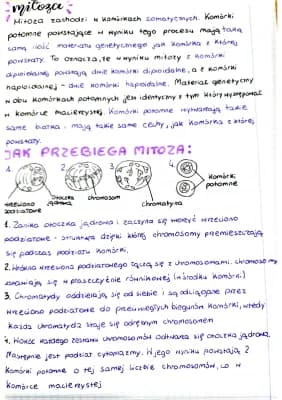 mitoza
Mitoza zachodzi w komórkach somatycznych. Komórki
potomne powstające w wyniku tego procesu mają taką
samą ilość materiału genetycznego jak komórka z której
powstały. To oznacza, że w wyniku mitozy z komórki
diploidalnej powstają dwie komórki diploidalne, a z komórki
haploidalnej - dwie komórki haploidalne. Materiał genetyczny
w obu komórkach potomnych jest identyczny z tym który występował
w komórce macierzystej. Komórki potomne wytwarzają takie
same białka - mają takie same cechy, jak komórka z której
powstały.
JAK PRZEBIEGA MITOZA:
1. 2. 3. 4.
komórki
potomne
wrzeciono
podziałowe
otoczka
jądrowa
chromosom
chromatyda
1. Zanika otoczka jądrowa i zaczyna się tworzyć wrzeciono
podziałowe - struktura dzięki której chromosomy przemieszczają
się podczas podziału komórki.
2. Włókna wrzeciona podziałowego łączą się z chromosomami. Chromosomy
ustawiają się w płaszczyźnie równikowej (w środku komórki)
3. Chromatydy oddzielają się od siebie i są odciągane przez
wrzeciono podziałowe do przeciwległych biegunów komórki, wtedy
każda chromatyda staje się odrębnym chromosomem
4. Wokół każdego zestawu chromosomów odtwarza się otoczka jądrowa
Następnie jest podział cytoplazmy. W jego wyniku powstają 2
komórki potomne o tej samej liczbie chromosomów, co w
komórce macierzystej